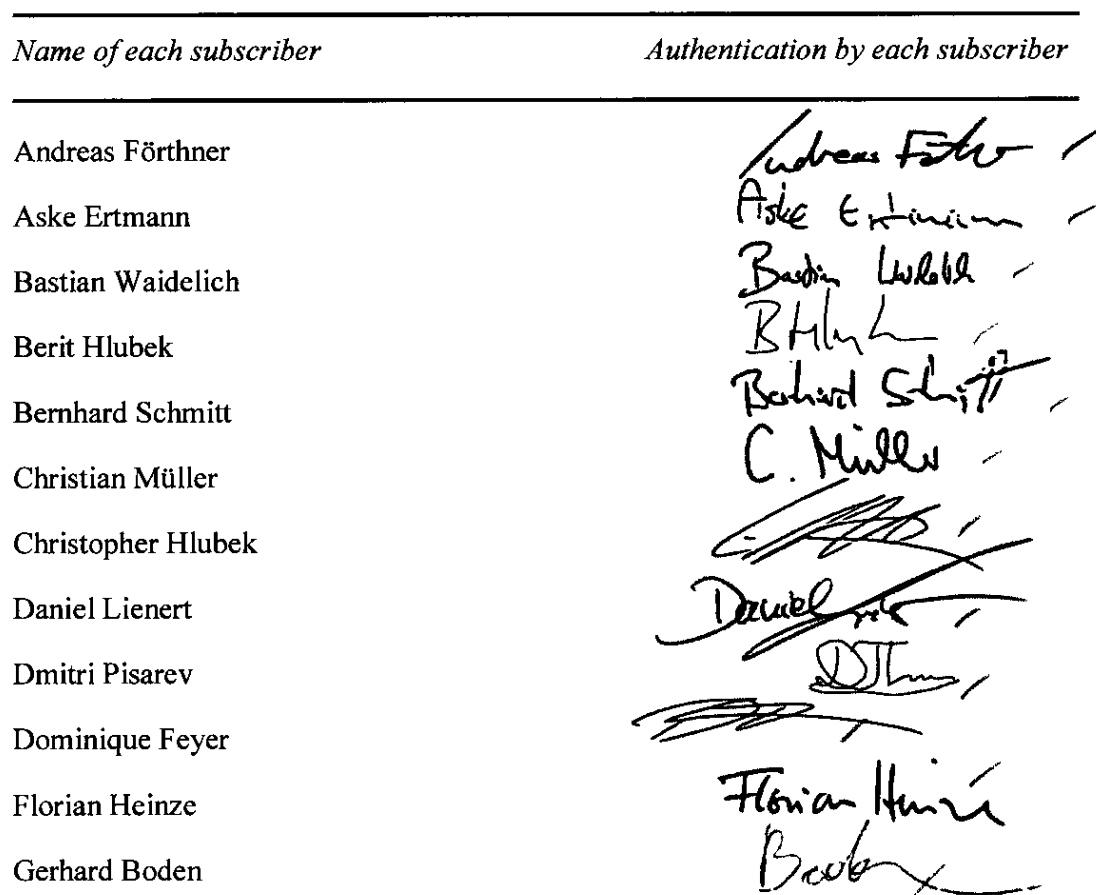 Name of each subscriber Authentication by each subscriber
Andreas Förthner Andreas
Aske Ertmann Aske Ertmann
Bastian Waidelich Bastian
Berit Hlubek
Bernhard Schmitt Bernhard Schmitt
Christian Müller C. Müller
Christopher Hlubek
Daniel Lienert Daniel
Dmitri Pisarev
Dominique Feyer
Florian Heinze Florian Heinze
Gerhard Boden